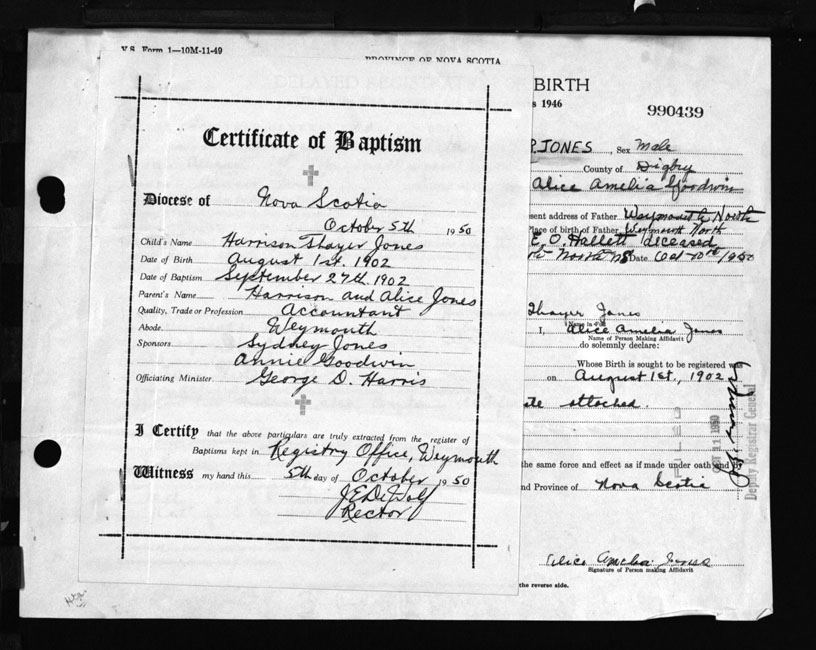 V.S. Form 1—10M-11-49
PROVINCE OF NOVA SCOTIA
DELAYED REGISTRAT
BIRTH
1946
990439
Certificate of Baptism
Diocese of Nova Scotia
October 5th 1950
Child's Name Harrison Thayer Jones
Date of Birth August 1st. 1902
Date of Baptism September 27th. 1902
Parent's Name Harrison and Alice Jones
Quality, Trade or Profession Accountant
Abode Weymouth
Sponsors Sydney Jones
Annie Goodwin
Officiating Minister George D. Harris
I Certify that the above particulars are truly extracted from the register of
Baptisms kept in Registry Office, Weymouth
Witness my hand this 5th day of October 1950
J.E. DeWolf
Rector
P. JONES, Sex Male
County of Digby
Alice Amelia Goodwin
sent address of Father Weymouth North
lace of birth of Father Weymouth North
E. O. Hallett deceased
North NS Date Oct 10th/1950
Thayer Jones
Name in Full
I, Alice Amelia Jones
Name of Person Making Affidavit
do solemnly declare:
Whose Birth is sought to be registered w
on August 1st., 1902
ate attached.
FILED
OCT 11 1950
Deputy Registrar General
the same force and effect as if made under oath and by
d Province of Nova Scotia
Alice Amelia Jones
Signature of Person making Affidavit
the reverse side.